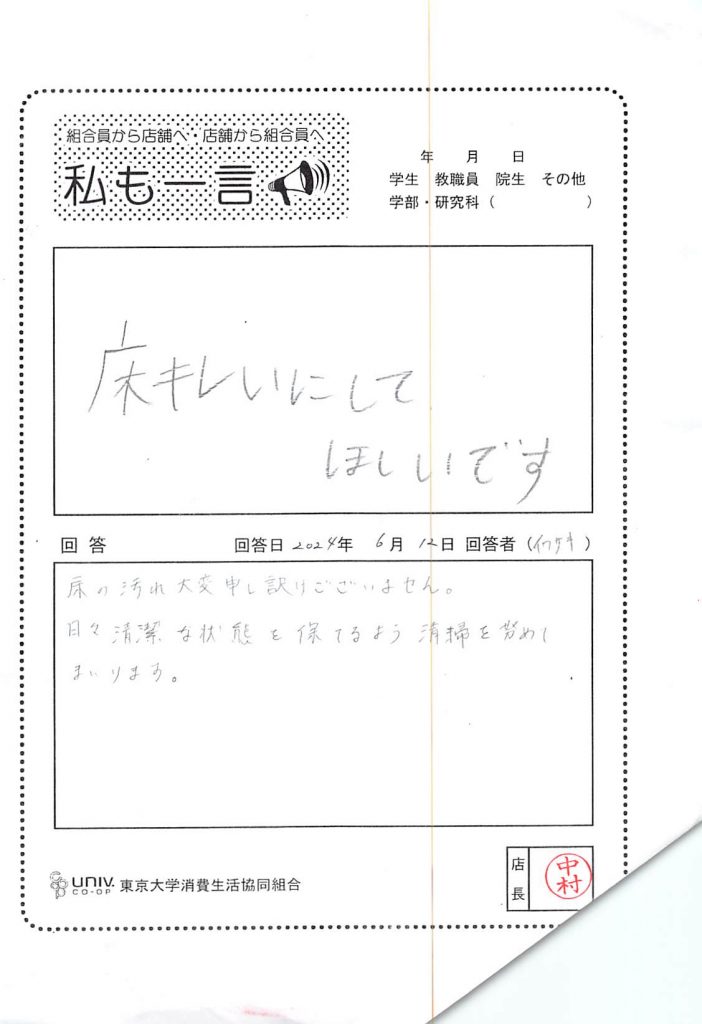 組合員から店舗へ・店舗から組合員へ
私も一言
年 月 日
学生 教職員 院生 その他
学部・研究科( )
床キレいにして
ほしいです
回答 回答日 2024年 6月 12日 回答者(イワサキ)
床の汚れ大変申し訳けございません。
日々清潔な状態を保てるよう清掃を努めて
まいります。
UNIV. CO-OP 東京大学消費生活協同組合
店長 中村